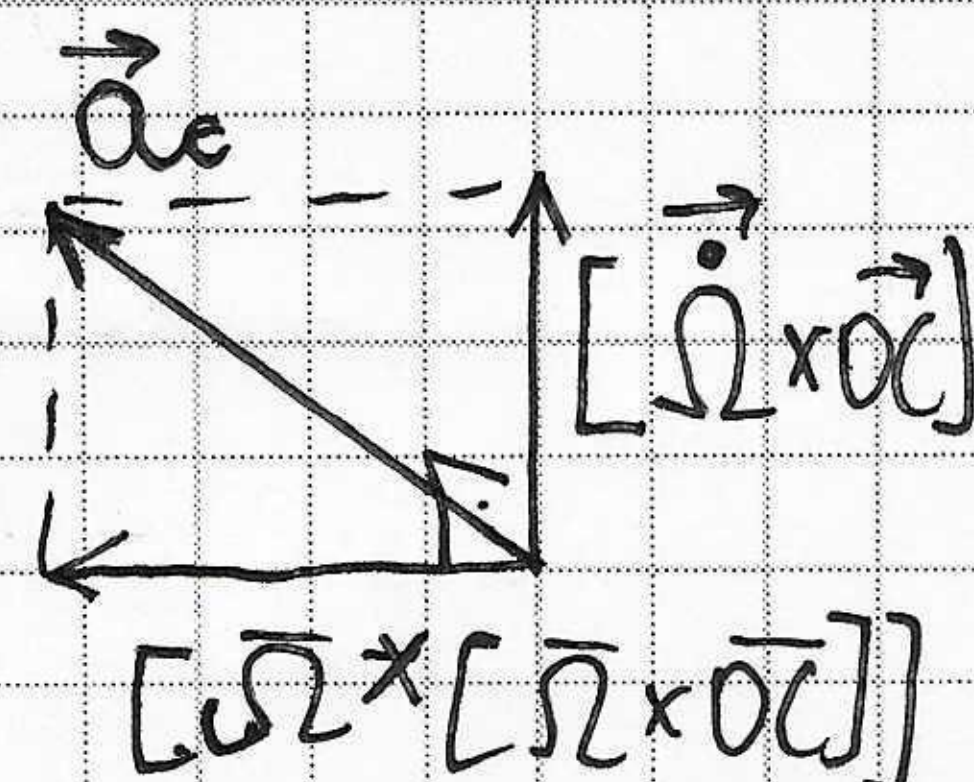 $\vec{a}_e$
$[\vec{\dot{\Omega}} \times \vec{OC}]$
$[\bar{\Omega} \times [\bar{\Omega} \times \overline{OC}]]$